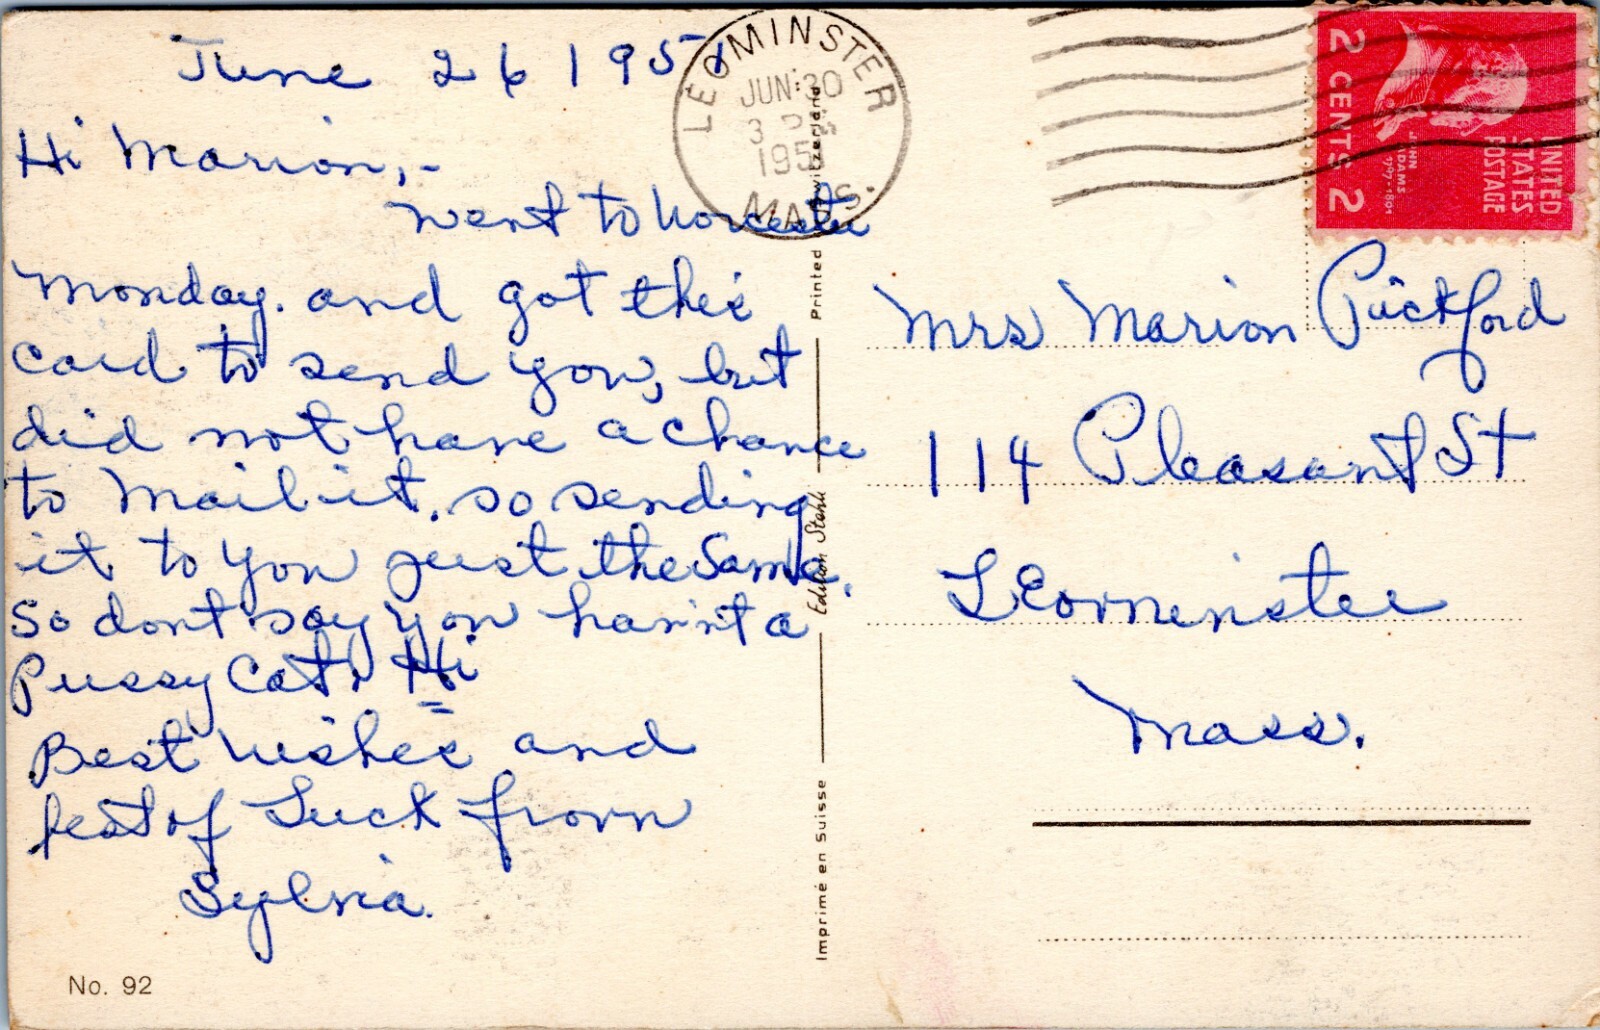 June 26 1951
Hi Marion,-
Went to Worcester
Monday. and got this
card to send you, but
did not have a chance
to Mail it. so sending
it to you just the Same.
So dont say you havint a
Pussy Cat. Hi
Best wishes and
best of Luck from
Sylvia.
No. 92
LEOMINSTER
JUN 30
3 P
195
MASS.
Printed Switzerland
Edition Stehli
Imprimé en Suisse
2 CENTS 2
JOHN ADAMS
1797-1801
UNITED
STATES
POSTAGE
Mrs Marion Pickford
114 Pleasant St
LEominster
Mass.